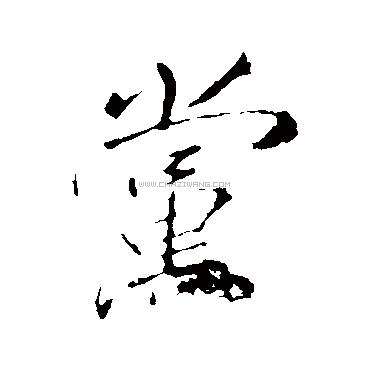 黨
WWW.CHAZIWANG.COM